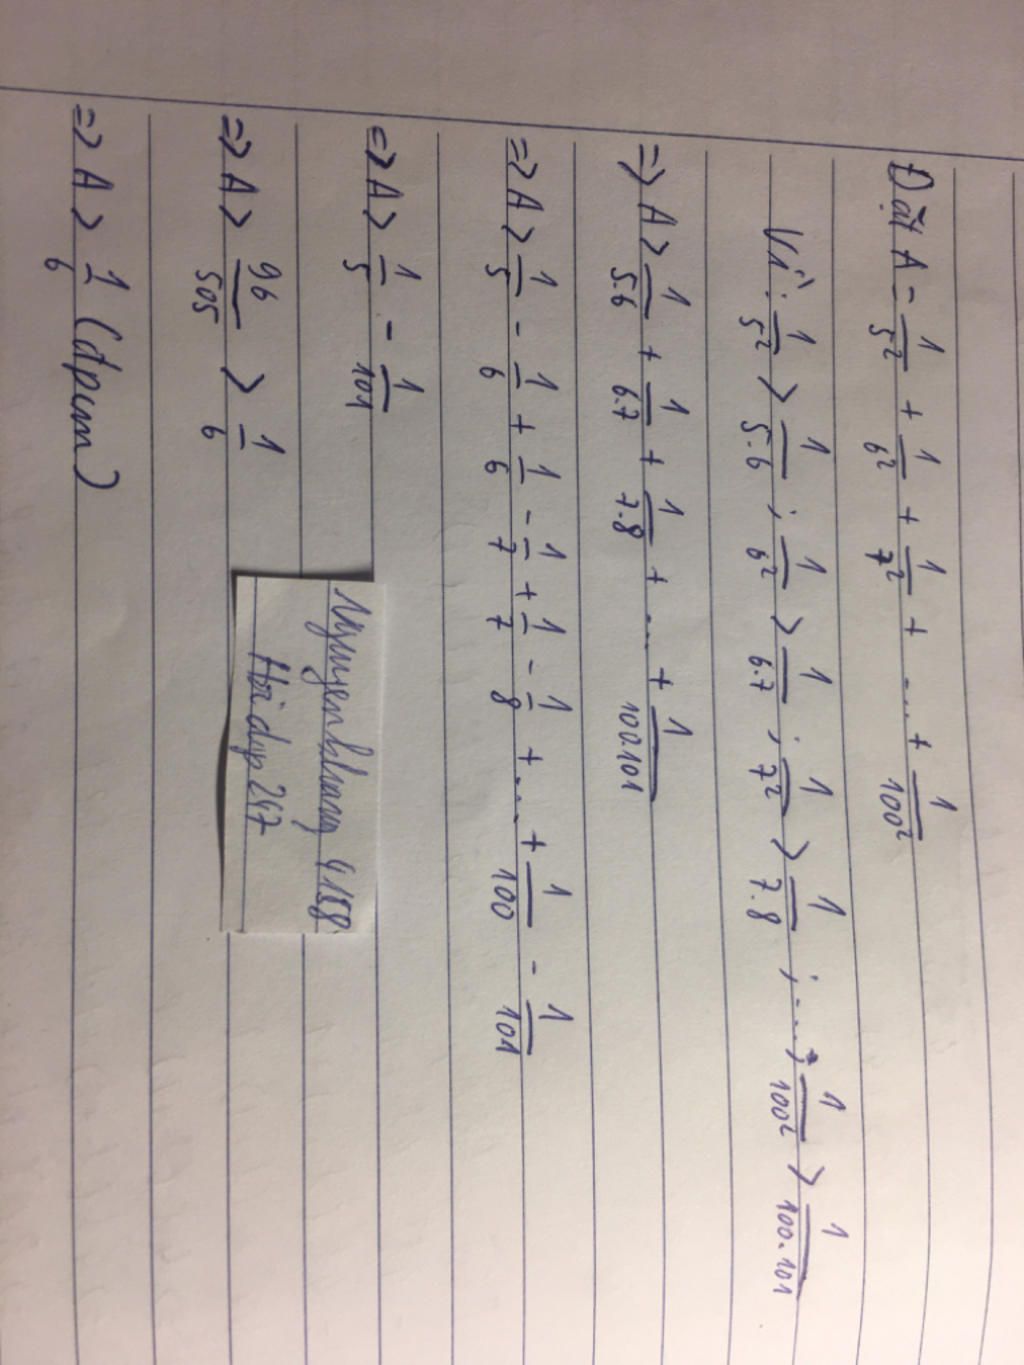 Đặt A = 1/5² + 1/6² + 1/7² + .... + 1/100²
Vì: 1/5² > 1/5.6 ; 1/6² > 1/6.7 ; 1/7² > 1/7.8 ; ....; 1/100² > 1/100.101
=> A > 1/5.6 + 1/6.7 + 1/7.8 + .... + 1/100.101
=> A > 1/5 - 1/6 + 1/6 - 1/7 + 1/7 - 1/8 + .... + 1/100 - 1/101
=> A > 1/5 - 1/101
=> A > 96/505 > 1/6
=> A > 1/6 (đpcm)
Hỏi đáp 247